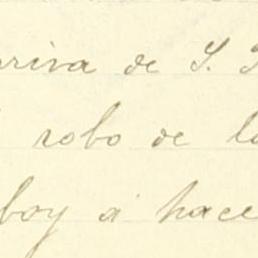 rriva de S. S
robo de la
boy á hace